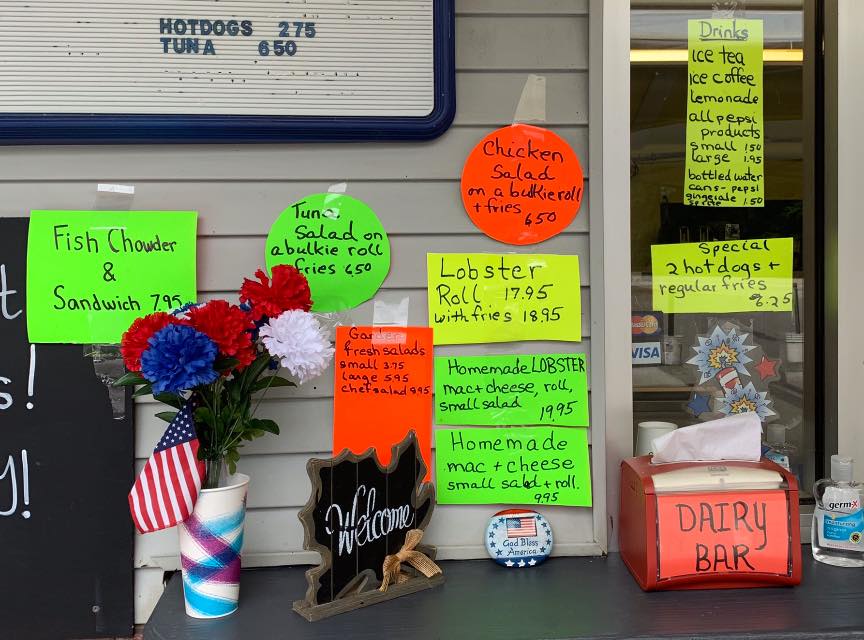 HOTDOGS 275
TUNA 650
Drinks
ice tea
ice coffee
Lemonade
all pepsi
products
small 1.50
large 1.95
bottled water
cans-pepsi
gingeriale
sprite 1.50
Chicken
Salad
on a bulkie roll
+ fries 650
Tuna
Salad on
a bulkie roll
fries 650
Fish Chowder
&
Sandwich 7.95
Special
2 hot dogs +
regular fries
6.25
Lobster
Roll 17.95
with fries 18.95
Garden
fresh salads
small 3.75
large 5.95
chef salad 8.95
Homemade LOBSTER
mac + cheese, roll,
small salad 19.95
Homemade
mac + cheese
small salad + roll.
9.95
MasterCard
VISA
t
s!
y!
Welcome
God Bless
America
DAIRY
BAR
germ-x